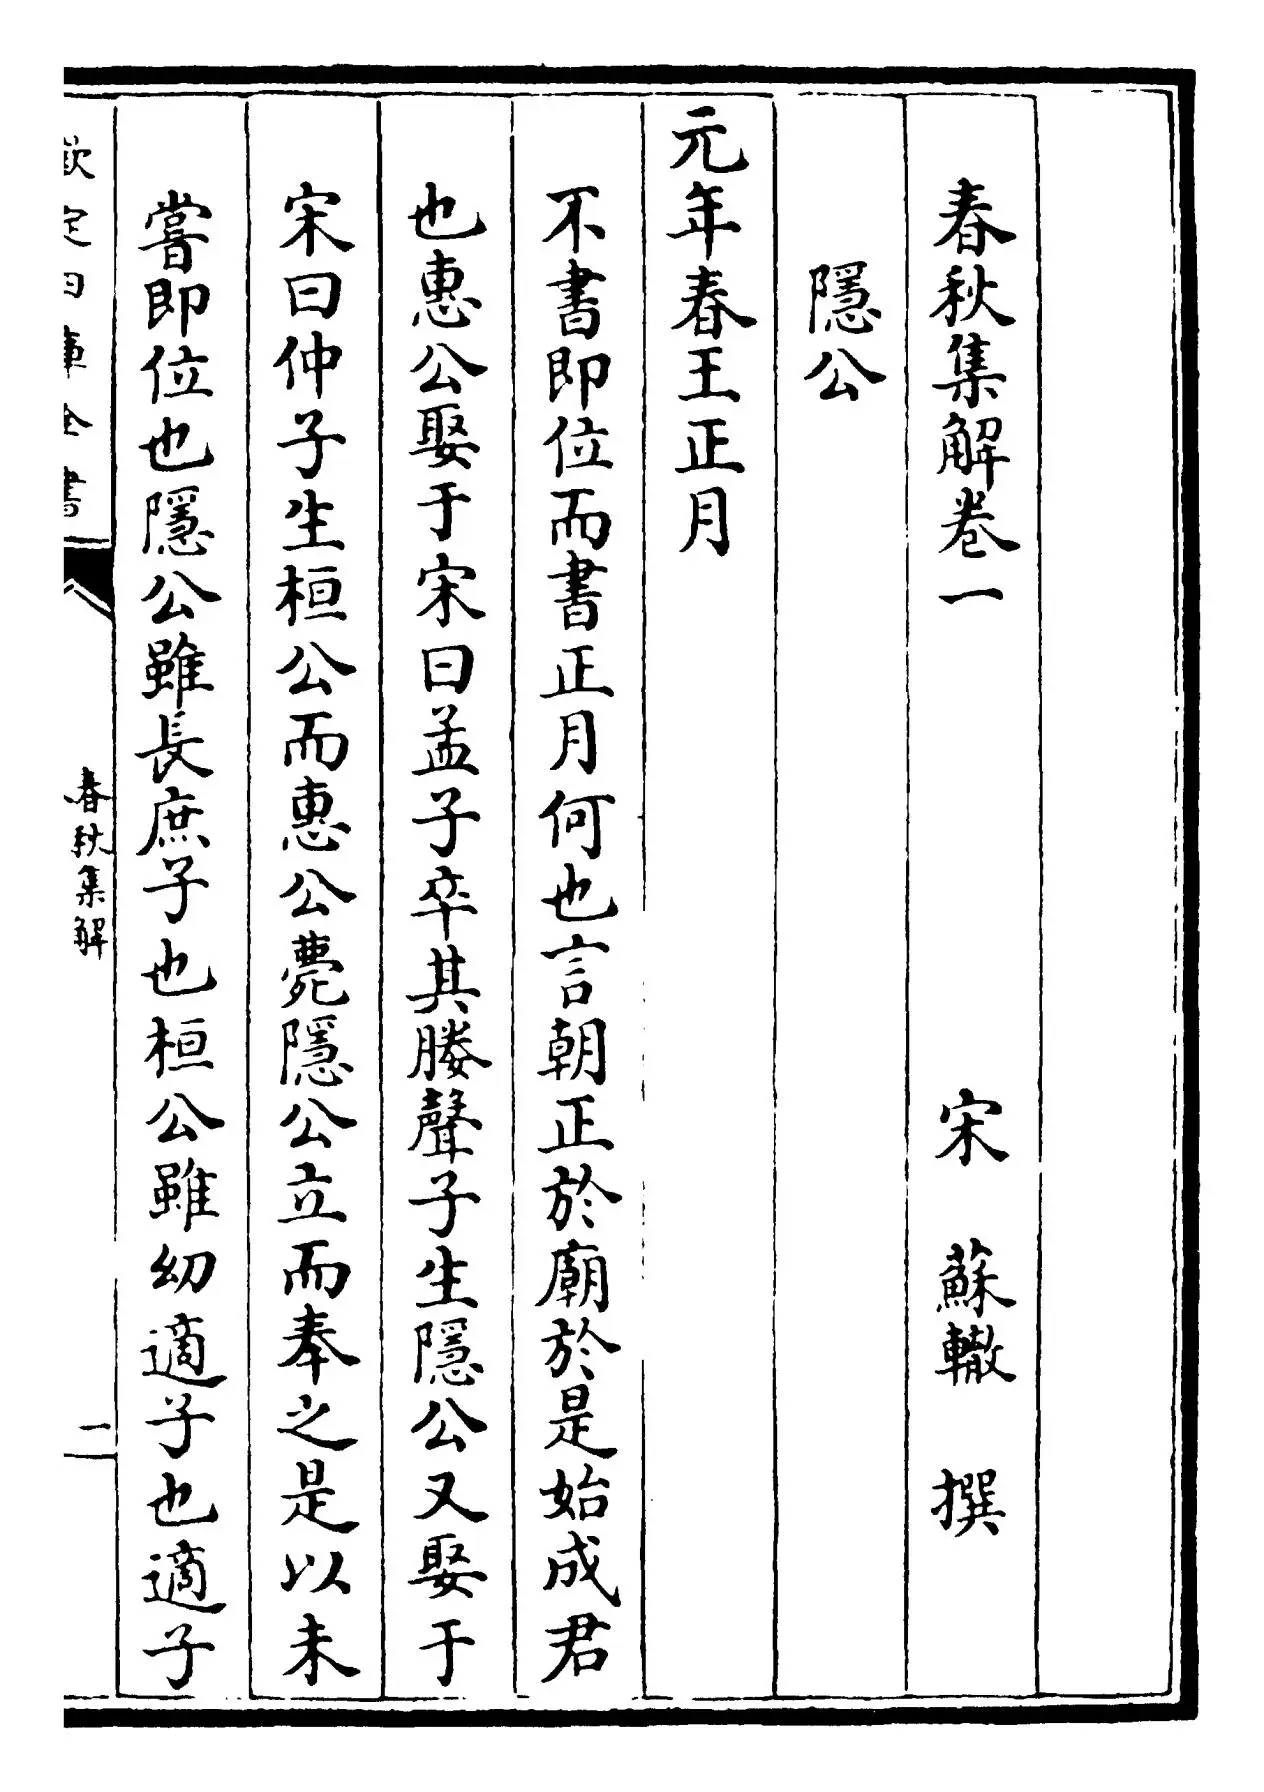 春秋集解卷一　宋　蘇轍　撰
隱公
元年春王正月
不書即位而書正月何也言朝正於廟於是始成君
也惠公娶于宋曰孟子卒其媵聲子生隱公又娶于
宋曰仲子生桓公而惠公薨隱公立而奉之是以未
嘗即位也隱公雖長庶子也桓公雖幼適子也適子
欽定四庫全書
春秋集解
一